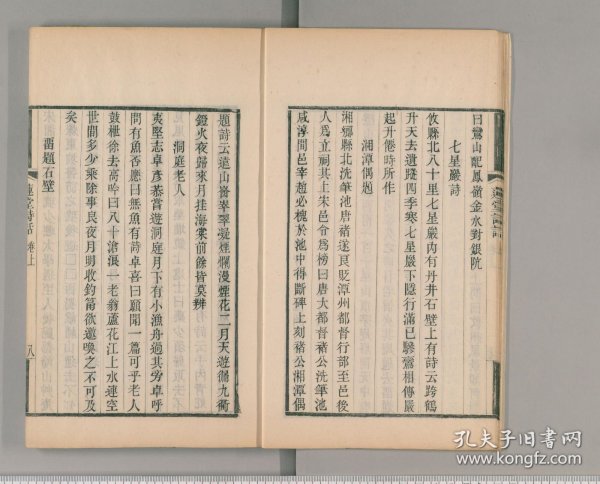 曰鷰山配鳳嶺金水對銀阬
七星巖詩
攸縣北八十里七星巖內有丹井石壁上有詩云跨鶴
升天去遺踐四季寒七星巖下隱行滿已驂鸞相傳嚴
起升僊時所作
湘潭偶題
湘鄉縣北洗筆池唐褚遂良貶潭州都督行部至邑後
人爲立祠其上朱邑令爲榜曰唐大都督褚公洗筆池
咸淳間邑宰趙必槐於池中得斷碑上刻褚公湘潭偶
題詩云遠山崒翠凝煙爛漫煙花二月天遊徧九衢
鐙火夜歸來月挂海棠前餘皆莫辨
洞庭老人
夷堅志卓彥恭嘗遊洞庭月下有小漁舟過其旁卓呼
問有魚否應曰無魚有詩卓喜曰願聞一篇可乎老人
鼓枻徐去高吟曰八十滄浪一老翁蘆花江上水連空
世間多少乘除事良夜月明收釣筩欲邀喚之不可及
矣
畱題石壁
蓮堂詩話 卷上
八
蓮堂詩話
孔夫子旧書网
www.kongfz.com